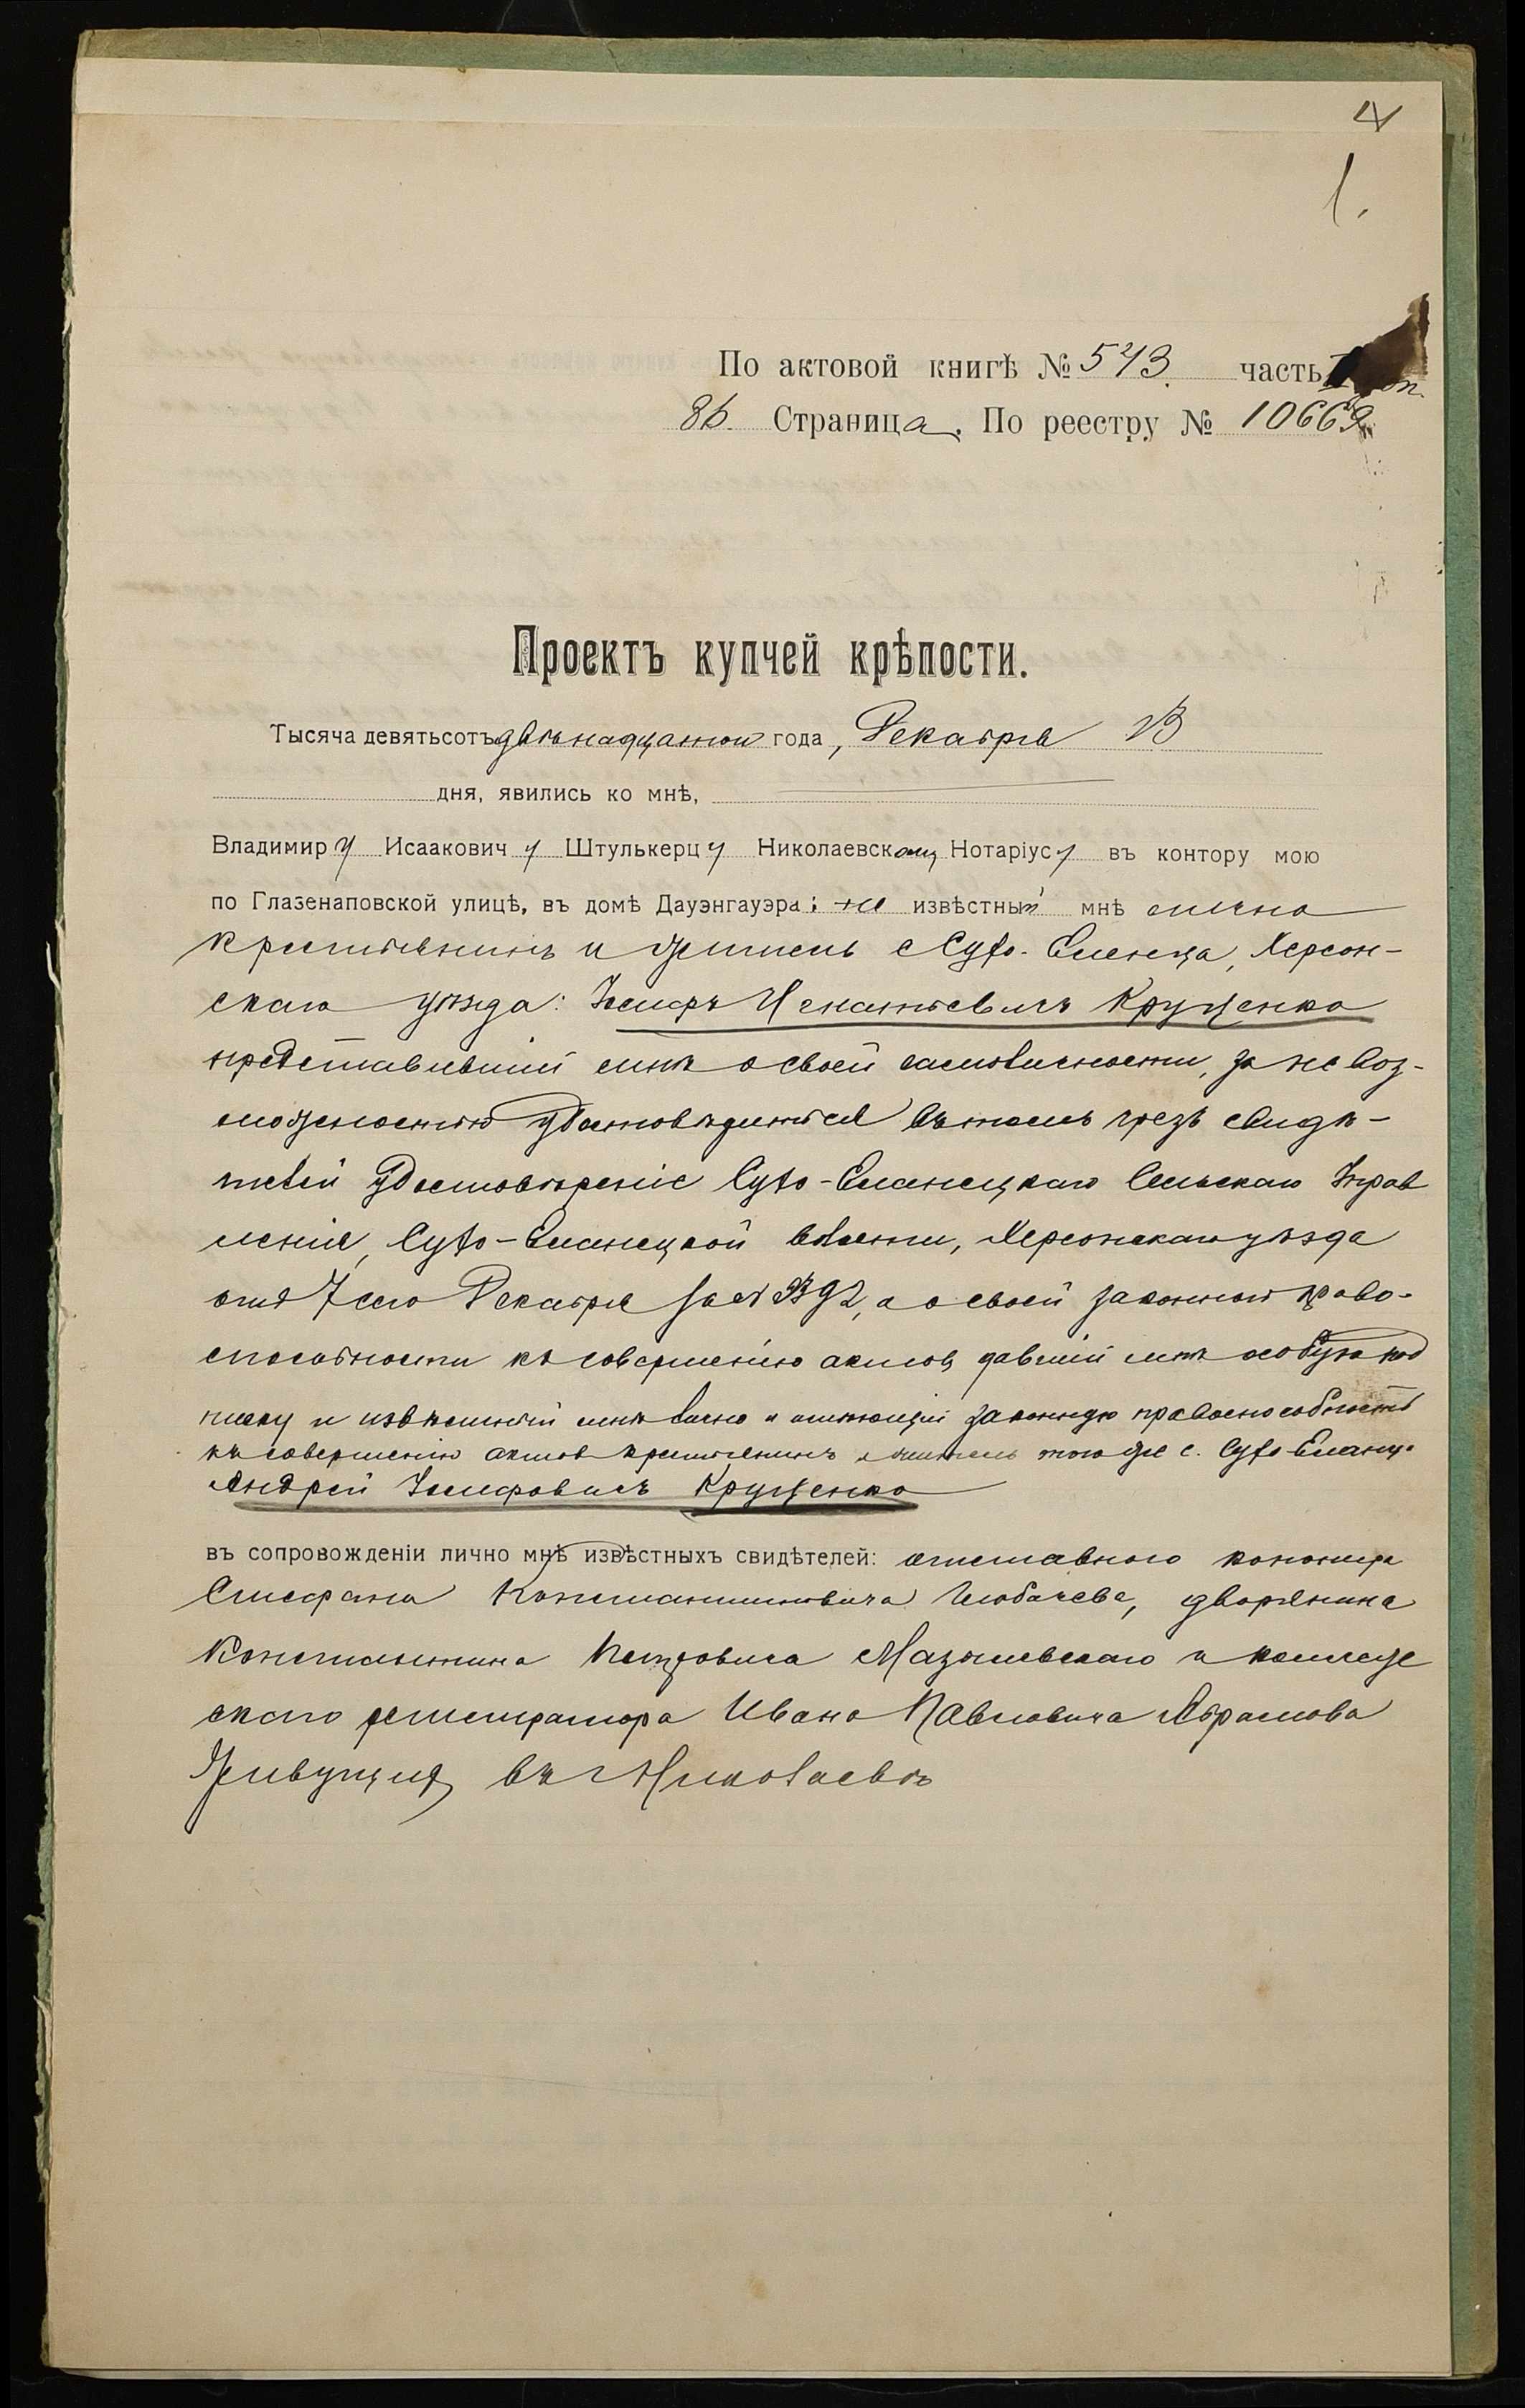 4
1.
По актовой книгѣ № 543. часть
86. Страница. По реестру № 10669
Проектъ купчей крѣпости.
Тысяча девятьсотъ двѣнадцатаго года, Декабря 13
дня, явились ко мнѣ,
Владимиру Исааковичу Штулькерцу Николаевскому Нотаріусу въ контору мою
по Глазенаповской улицѣ, въ домѣ Дауэнгауэра: не извѣстный мнѣ лично
крестьянинъ и житель с Сухо-Еланца, Херсон-
скаго уѣзда: Іосифъ Игнатьевичъ Крущенко
представившій мнѣ о своей самоличности, за не воз-
можностью удостовѣриться въ томъ чрезъ свидѣ-
телей удостовѣреніе Сухо-Еланецкаго Сельскаго Прав
ленія, Сухо-Еланецкой волости, Херсонскаго уѣзда
отъ 7 сего Декабря за № 1392, а о своей законной право-
способности къ совершенію актовъ давшій мнѣ особую под
писку и извѣстный мнѣ лично и имѣющій законную правоспособность
къ совершенію актовъ крестьянинъ и житель того же с. Сухо-Еланца
Андрей Іосифовичъ Крущенко
въ сопровожденіи лично мнѣ извѣстныхъ свидѣтелей: отставного
Стефана Константиновича Любачева, дворянина
Константина Петровича Мазылевскаго и коллеж
скаго регистратора Ивана Павловича Абрамова
живущихъ въ г Николаевѣ